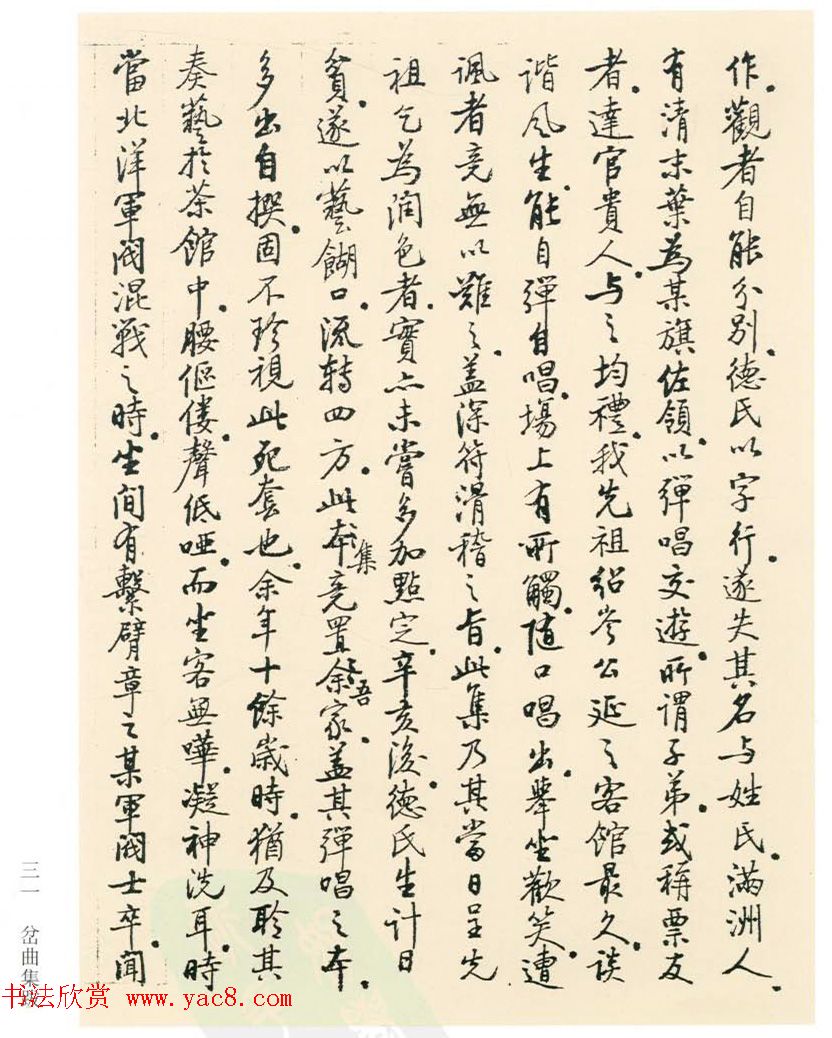 作。觀者自能分別。德氏以字行。遂失其名与姓氏。滿洲人。
有清末葉為某旗佐領。以彈唱交遊。所謂子弟。或稱票友
者。達官貴人。与之均禮。我先祖紹岑公延之客館最久。談
諧风生。能自彈自唱。場上有所觸。随口唱出。舉坐歡笑。遭
諷者竟無以難之。盖深符滑稽之旨。此集乃其當日呈先
祖乞為润色者。實亦未嘗多加點定。辛亥後。德氏生計日
貧。遂以藝餬口。流转四方。此本集竟置余吾家。盖其弹唱之本。
多出自撰。固不珍視此死套也。余年十餘歲時。猶及聆其
奏藝於茶館中。腰傴僂。聲低哑。而坐客無嘩。凝神洗耳。時
當北洋軍阀混戰之時。坐间有繫臂章之某軍阀士卒。闻
三一 岔曲集跋
书法欣赏 www.yac8.com